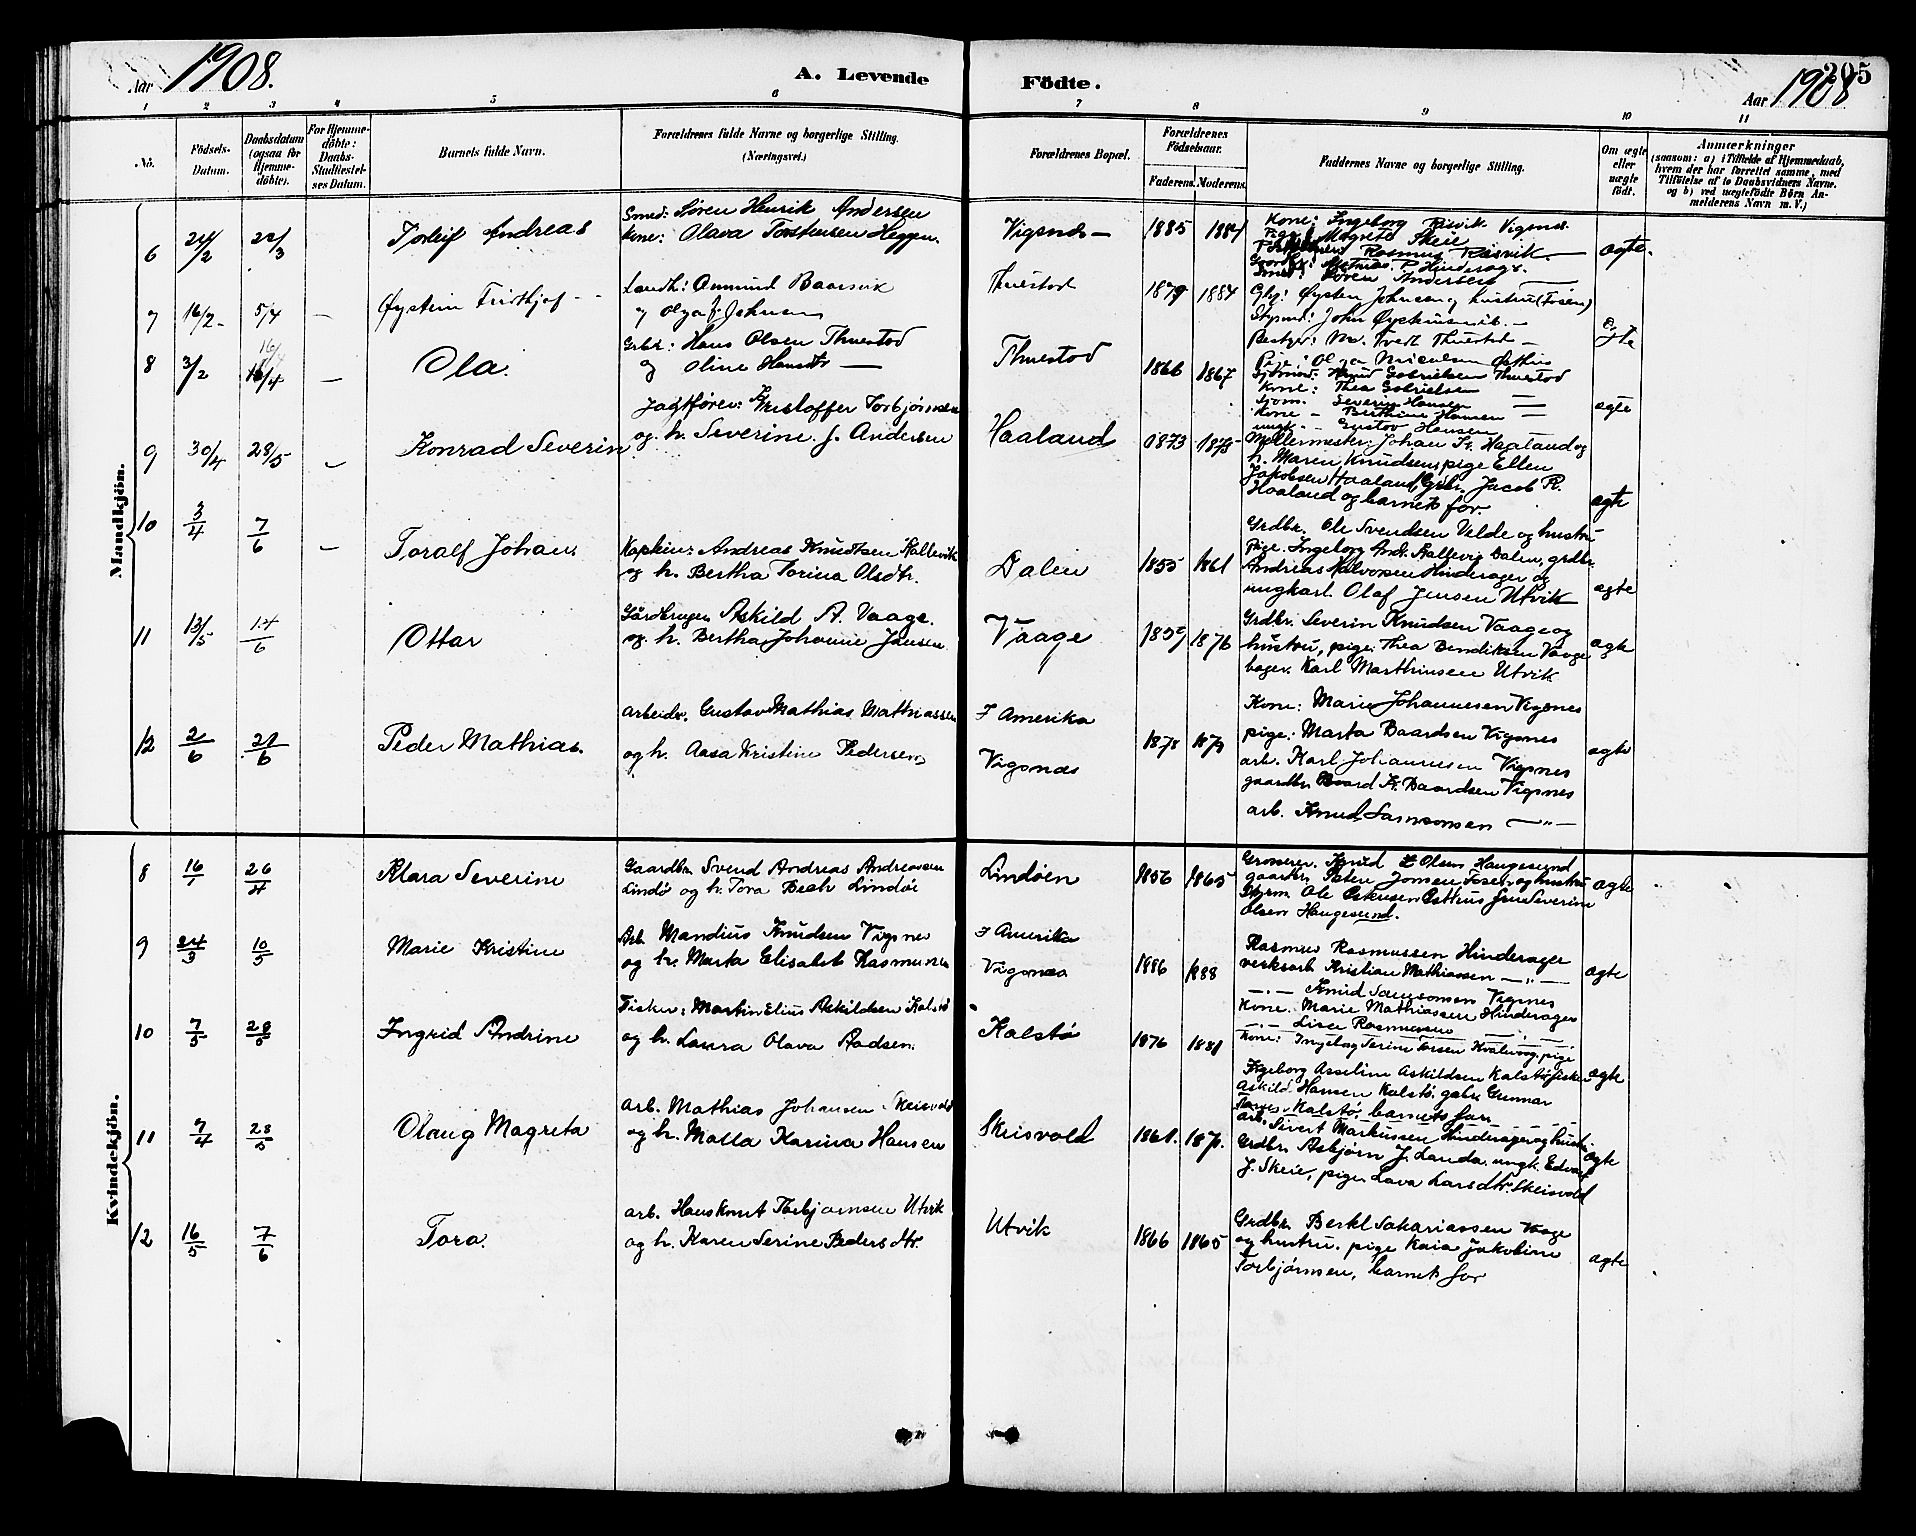 Aar 1908.
A. Levende Födte.
Aar 1908
205
1 2 3 4 5 6 7 8 9 10 11
No.
Födsels-Datum.
Daabsdatum (ogsaa for Hjemme-döbte).
For Hjemme-döbte: Daabs-Stadfæstel-ses Datum.
Barnets fulde Navn.
Forældrenes fulde Navne og borgerlige Stilling. (Næringsvei.)
Forældrenes Bopæl.
Forældrenes Födselsaar.
Faderens. Moderens.
Faddernes Navne og borgerlige Stilling.
Om ægte eller uægte født.
Anmærkninger
(saasom: a) i Tilfælde af Hjemmedaab,
hvem der har forrettet samme, med
Tilföielse af to Daabsvidners Navne.
og b) ved uægtefødte Börn An-
melderens Navn m. V.)
Mandkjön.
6 24/2 22/3 Torleif Andreas
Smed: Søren Henrik Andersen
Kone: Olava Torstensen Heggen.
Vigsnæs — 1885 1884
Kone: Ingeborg Risvik Vigsnes
Pige: Magrete Skeie
Rasmus Risvik —
Mathias P Hinderager
Smed: Søren Andersen —
ægte.
7 16/2 5/4 — Øystein Fridthjof - -
Landh: Onmund Baarsvik
og Olga f. Johnsen
Thuestad 1879 1884
Gbr: Øysten Johnsen og hustru (Fosen)
Styrmd: John Øysteinsvik. —
Bestyr: M. Tvedt Thuestad —
ægte
8 3/2 16/4 16/4 — Ola.
Grbr: Hans Olsen Thuestad
og Oline Hansdtr —
Thuestad 1866 1867
Pige: Olga Nicolsen Østhus
Gjetmand: Knud Gabrielsen Thuestad
Kone: Thea Gabrielsen
Sjom. Severin Hansen —
Kone — Berthine Hansen —
ungk. — Gustav Hansen
ægte
9 30/4 28/5 — Konrad Severin
Jagtfører: Kristoffer Torbjørnsen
og h. Severine J. Andersen
Haaland 1873 1875
Møllermester: Johan K. Haaland og
h. Maren Knudsen, pige Ellen
Jakobsen Haaland, Grbr. Jacob R.
Haaland og barnets far.
ægte
10 3/4 7/6 — Toralf Johan
Kaptein: Andreas Knudtsen Kallevik
og h. Bertha Torina Olsdtr.
Dalen 1855 1861
Grdbr. Ole Svendsen Velde og hustru
Pige. Ingeborg Andr. Kallevig Dalen, grdbr.
Andreas Halvorsen Hinderager og
ungkarl Olaf Jensen Utvik
ægte
11 13/5 14/6 Ottar
Gårdbruger Askild A. Vaage.
og h. Bertha Johanne Jansen
Vaage 1859 1876
Grdbr. Severin Knudsen Vaage og
hustru, pige: Thea Bendiksen Vaage
bager. Karl Marthinsen Utvik
ægte
12 2/6 21/6 Peder Mathias.
Arbeider. Gustav Mathias Mathiassen
og h. Aasa Kristine Pedersen
I Amerika
Vigsnæs
1878 1879
Kone: Marie Johannesen Vigsnes
pige: Marta Baardsen Vigsnes
arb. Karl Johannesen Vigsnes
gaardbr. Baard K. Baardsen Vigsnes
arb. Knud Samsonsen —"—
ægte
Kvindekjön.
8 16/1 26/4 Klara Severine
Gaardbr. Svend Andreas Andreassen
Lindø og h. Tora Bech Lindøe
Lindøen 1856 1865
Grosserer. Knud Olsen Haugesund
gaardbr. Peter Jonsen Fosen og hustru
Styrm. Ole Eskesen Østhus Jens Severine
Olsen Haugesund.
ægte
9 24/3 10/5 Marie Kristine
Arb. Mandius Knudsen Vigsnes
og h. Marta Elisabet Rasmusen
I Amerika
Vigsnæs
1886 1888
Rasmus Rasmussen Hinderager
verksarb. Kristian Mathiassen —"—
—"— Knud Samsonsen Vigsnes
Kone. Marie Mathiassen Hinderager
—"— Lisa Rasmussen —"—
ægte
10 7/5 28/5 Ingrid Andrine
Fisker: Martin Elius Askildsen Kalstø
og h. Laura Olava Aadsen.
Kalstø 1876 1881
Kone: Ingeborg Serine Torsen Kvalevaag, pige
Ingeborg Asseline Askildsen Kalstø fisker
Askild Hansen Kalstø, gabr. Gunnar
Kalstø, barnets far
ægte
11 7/4 28/5 Olaug Magreta
Arb. Mathias Johansen Skeisvold
og h. Malla Karina Hansen
Skeisvold 1861. 1871.
arb. Sivert Markussen Hinderager og hustr.
Grdbr. Asbjørn J. Landa. ungk. Edvard
J. Skeie, pige Lava Larsdtr. Skeisvold
ægte
12 16/5 7/6 Tora.
arb. Hans Knut Torbjørnsen Utvik
og h. Karen Serine Pedersdtr.
Utvik 1866 1865
Grdbr. Berkl Sakariassen Vaage
og hustru. pige Kaia Jakobine
Torbjørnsen, barnets far
ægte